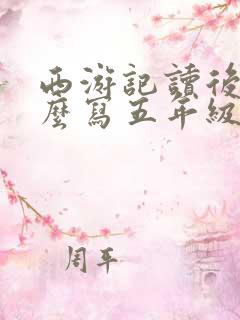 西游記讀後
麼寫五年級
周平